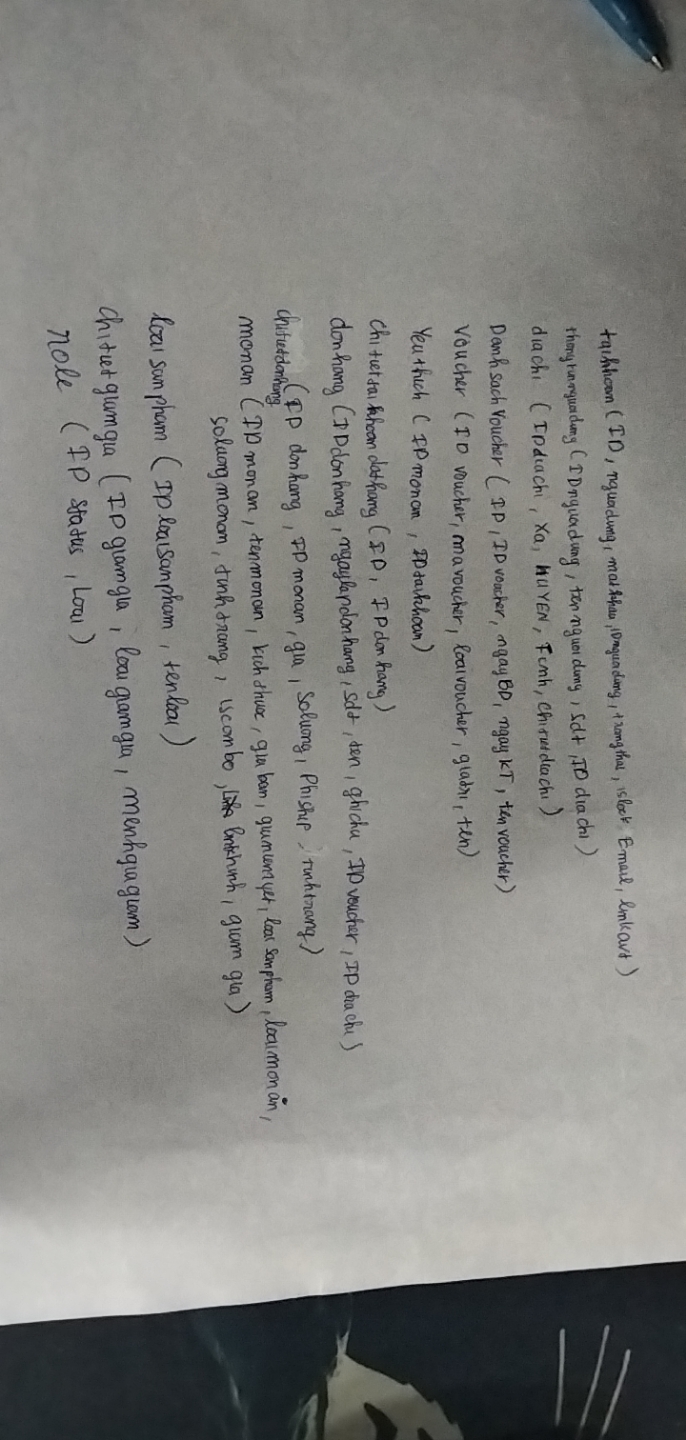 taikhoan (ID, nguoidung, matkhau, IDnguoidung, trangthai, islock Email, linkavt)
thongtinnguoidung (IDnguoidung, tennguoidung, sdt, ID diachi)
diachi (IDdiachi, Xa, HUYEN, Tinh, chitietdiachi)
Danh sach voucher (ID, ID voucher, ngayBD, ngayKT, ten voucher)
Voucher (ID voucher, mavoucher, loaivoucher, giatri, ten)
Yeuthich (IDmonan, IDtaikhoan)
chitiettaikhoandathang (ID, IDdonhang)
donhang (IDdonhang, ngaylapdonhang, sdt, ten, ghichu, IDvoucher, IDdiachi)
chitietdonhang (ID donhang, IDmonan, gia, soluong, Phiship, tinhtrang)
monan (IDmonan, tenmonan, kichthuoc, giaban, gianiemyet, loaisanpham, loaimonăn,
soluongmonan, tinhtrang, iscombo, linkhinh, giam gia)
loaisanpham (IDloaisanpham, tenloai)
chitietgiamgia (IDgiamgia, loaigiamgia, menhgiagiam)
role (ID status, loai)